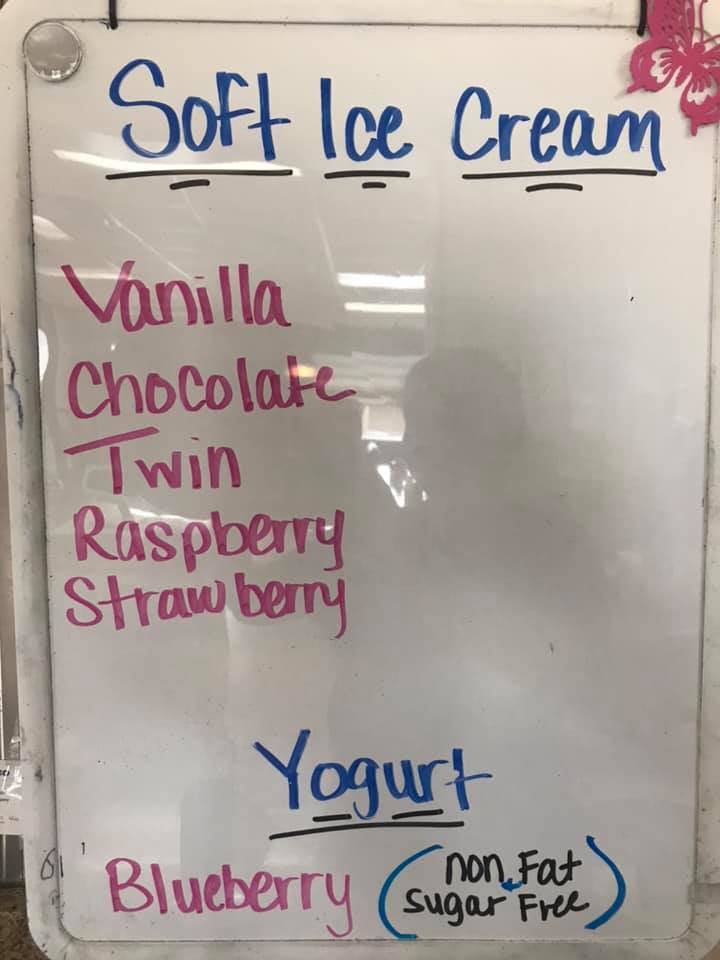 Soft Ice Cream
Vanilla
Chocolate
Twin
Raspberry
Strawberry
Yogurt
Blueberry (non Fat
sugar Free)